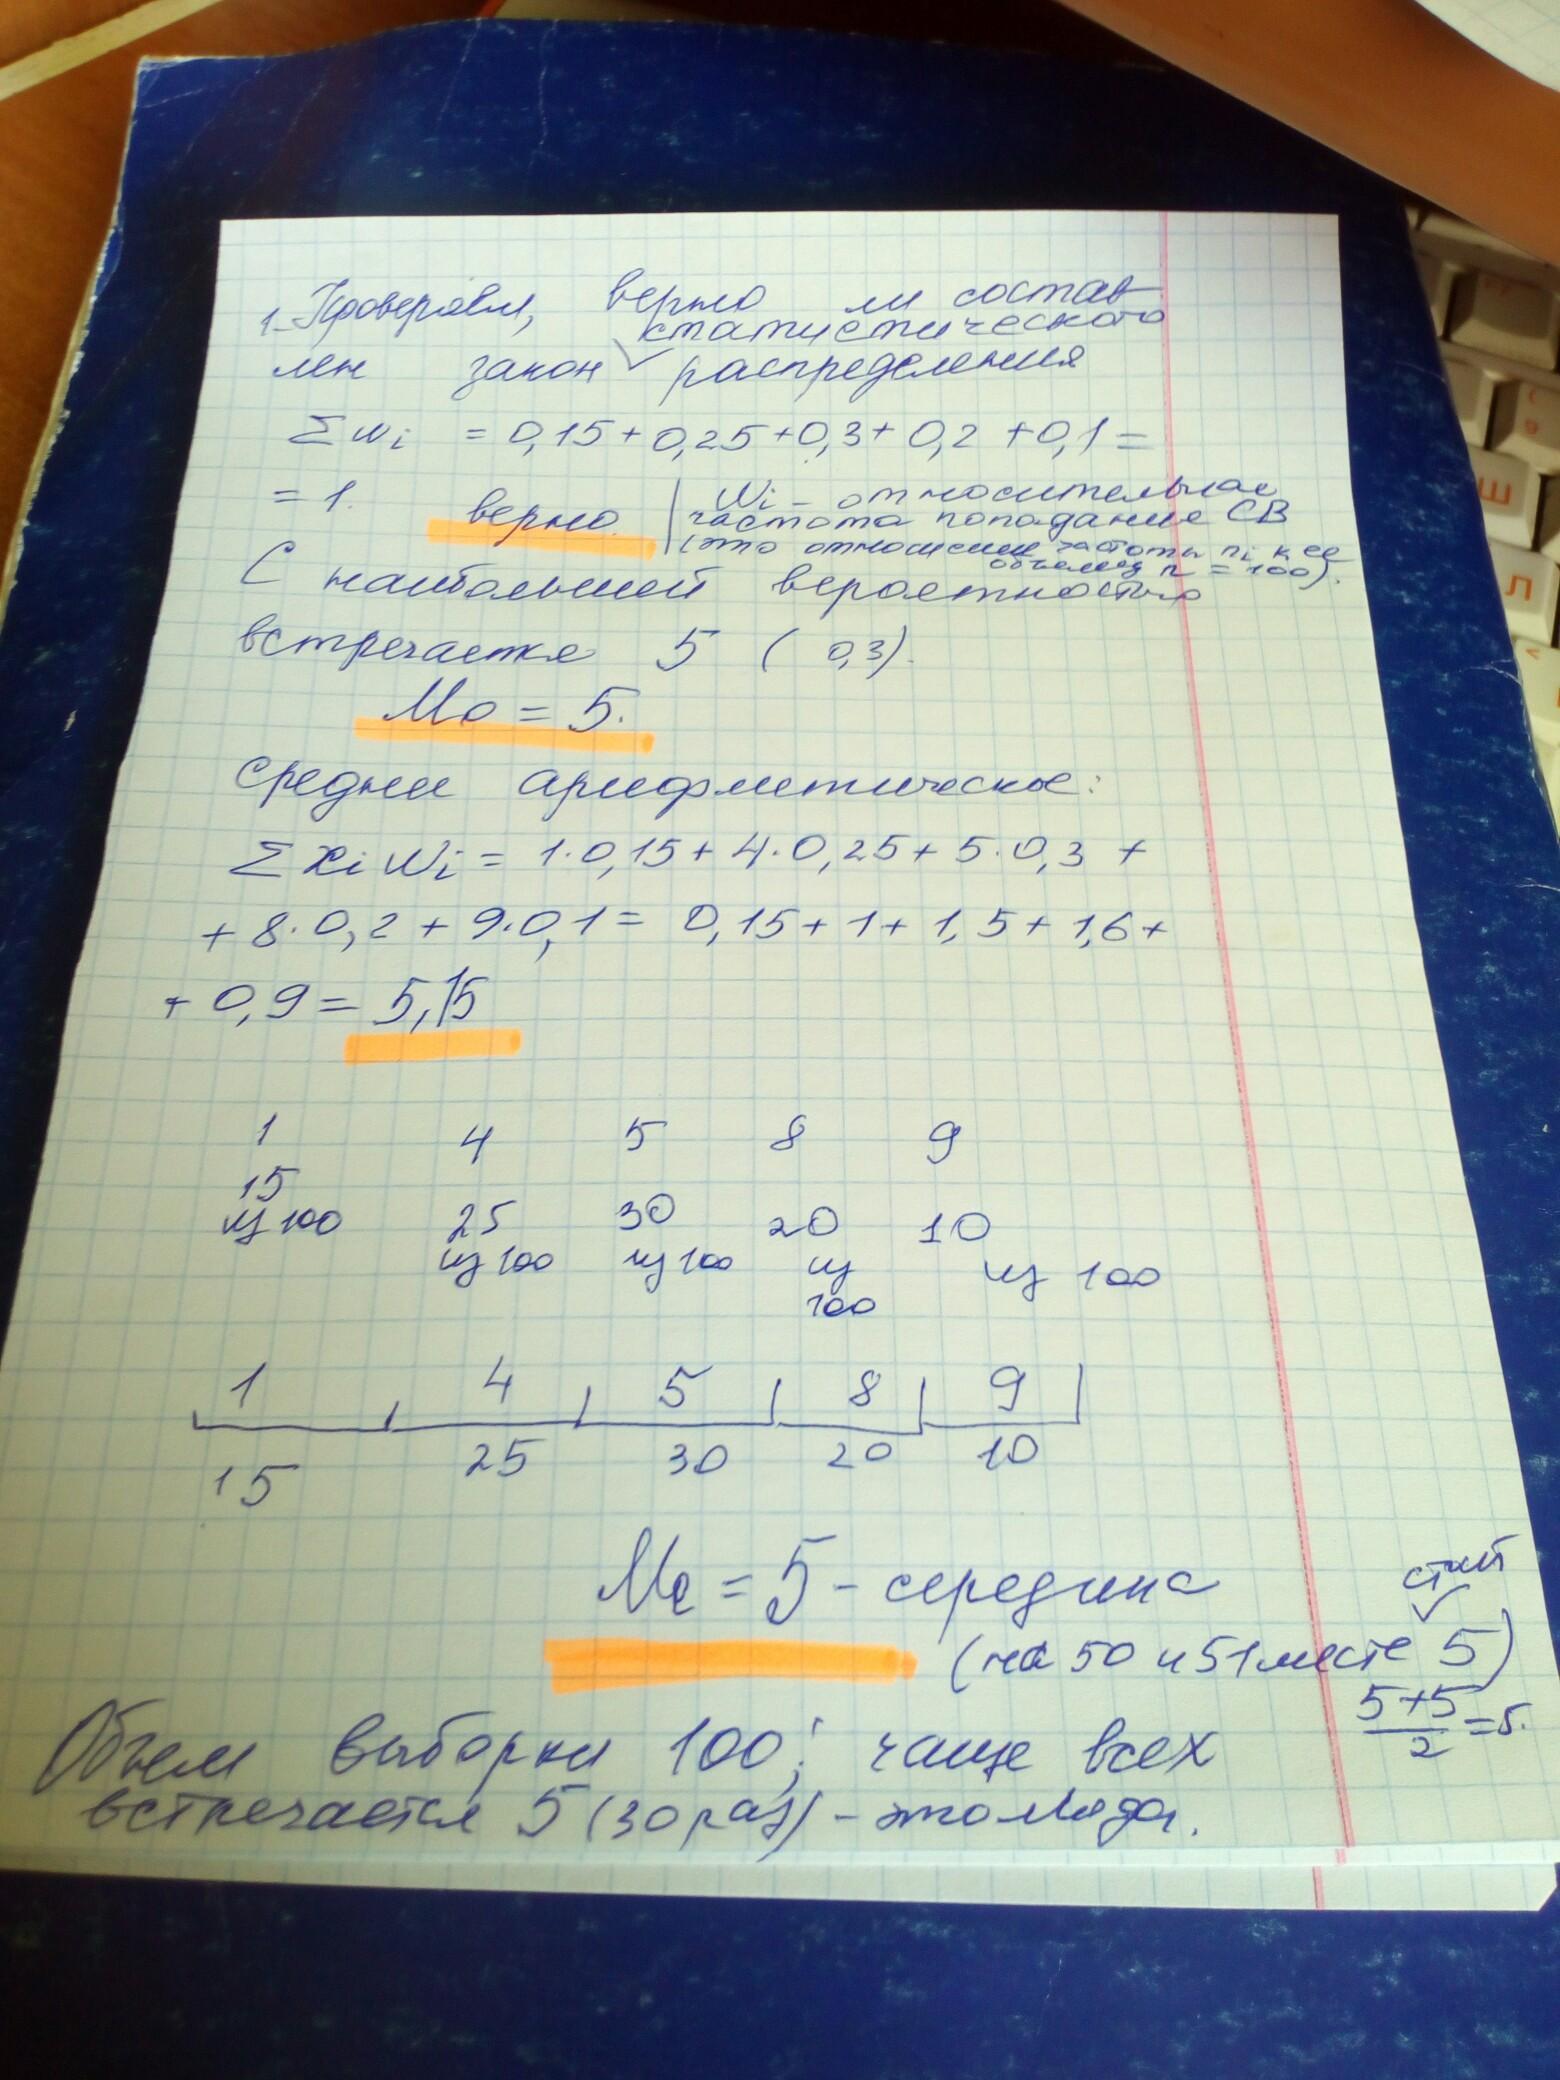 1. Проверяем, верно ли состав-
лен закон статистического распределения
Σwi = 0,15+0,25+0,3+0,2+0,1=
= 1. верно.
Wi – относительная
частота попадания СВ
(это отношение частоты ni к ее
объему n = 100).
С наибольшей вероятностью
встречается 5 (0,3).
Mo = 5.
Среднее арифметическое:
Σxiwi = 1·0,15+4·0,25+5·0,3+
+8·0,2+9·0,1= 0,15+1+1,5+1,6+
+0,9= 5,15
1 4 5 8 9
15 из 100 25 из 100 30 из 100 20 из 100 10 из 100
1 4 5 8 9
15 25 30 20 10
Me = 5 – середина
(на 50 и 51 месте стоит 5)
5+5/2 =5.
Объем выборки 100; чаще всех
встречается 5 (30 раз) – это мода.